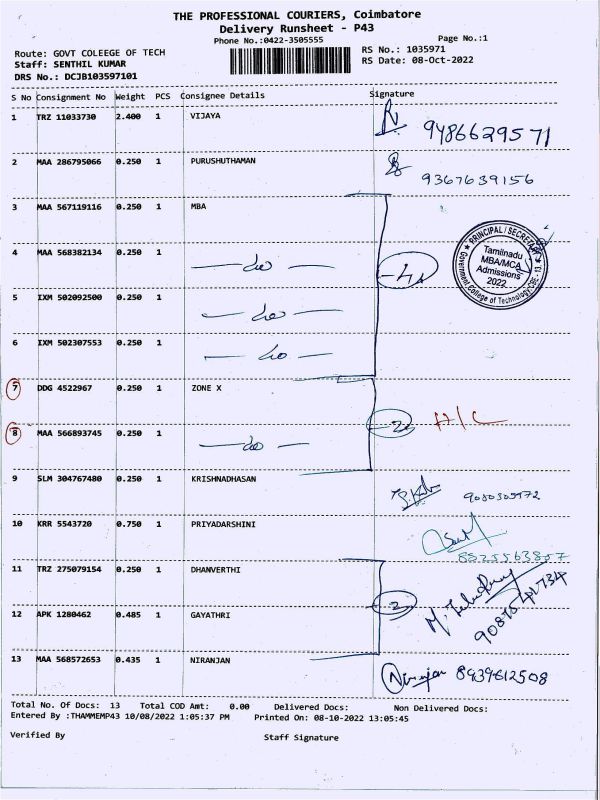 THE PROFESSIONAL COURIERS, Coimbatore
Delivery Runsheet - P43
Phone No.:0422-3505555
Page No.:1
Route: GOVT COLEEGE OF TECH
RS No.: 1035971
Staff: SENTHIL KUMAR
RS Date: 08-Oct-2022
DRS No.: DCJB103597101
S No Consignment No Weight PCS Consignee Details Signature
1 TRZ 11033730 2.400 1 VIJAYA 9486629571
2 MAA 286795066 0.250 1 PURUSHUTHAMAN 9367639156
3 MAA 567119116 0.250 1 MBA
PRINCIPAL / SECRETARY
Tamilnadu
MBA/MCA
Admissions
2022
Government College of Technology, CBE - 13
4 MAA 568382134 0.250 1 — do — 4
5 IXM 502092500 0.250 1 — do —
6 IXM 502307553 0.250 1 — do —
7 DDG 4522967 0.250 1 ZONE X
2 A/C
8 MAA 566893745 0.250 1 — do —
9 SLM 304767480 0.250 1 KRISHNADHASAN
10 KRR 5543720 0.750 1 PRIYADARSHINI
8825563857
11 TRZ 275079154 0.250 1 DHANVERTHI
2
12 APK 1280462 0.485 1 GAYATHRI
13 MAA 568572653 0.435 1 NIRANJAN Niranjan 8939612508
Total No. Of Docs: 13 Total COD Amt: 0.00 Delivered Docs: Non Delivered Docs:
Entered By :THAMMEMP43 10/08/2022 1:05:37 PM Printed On: 08-10-2022 13:05:45
Verified By Staff Signature